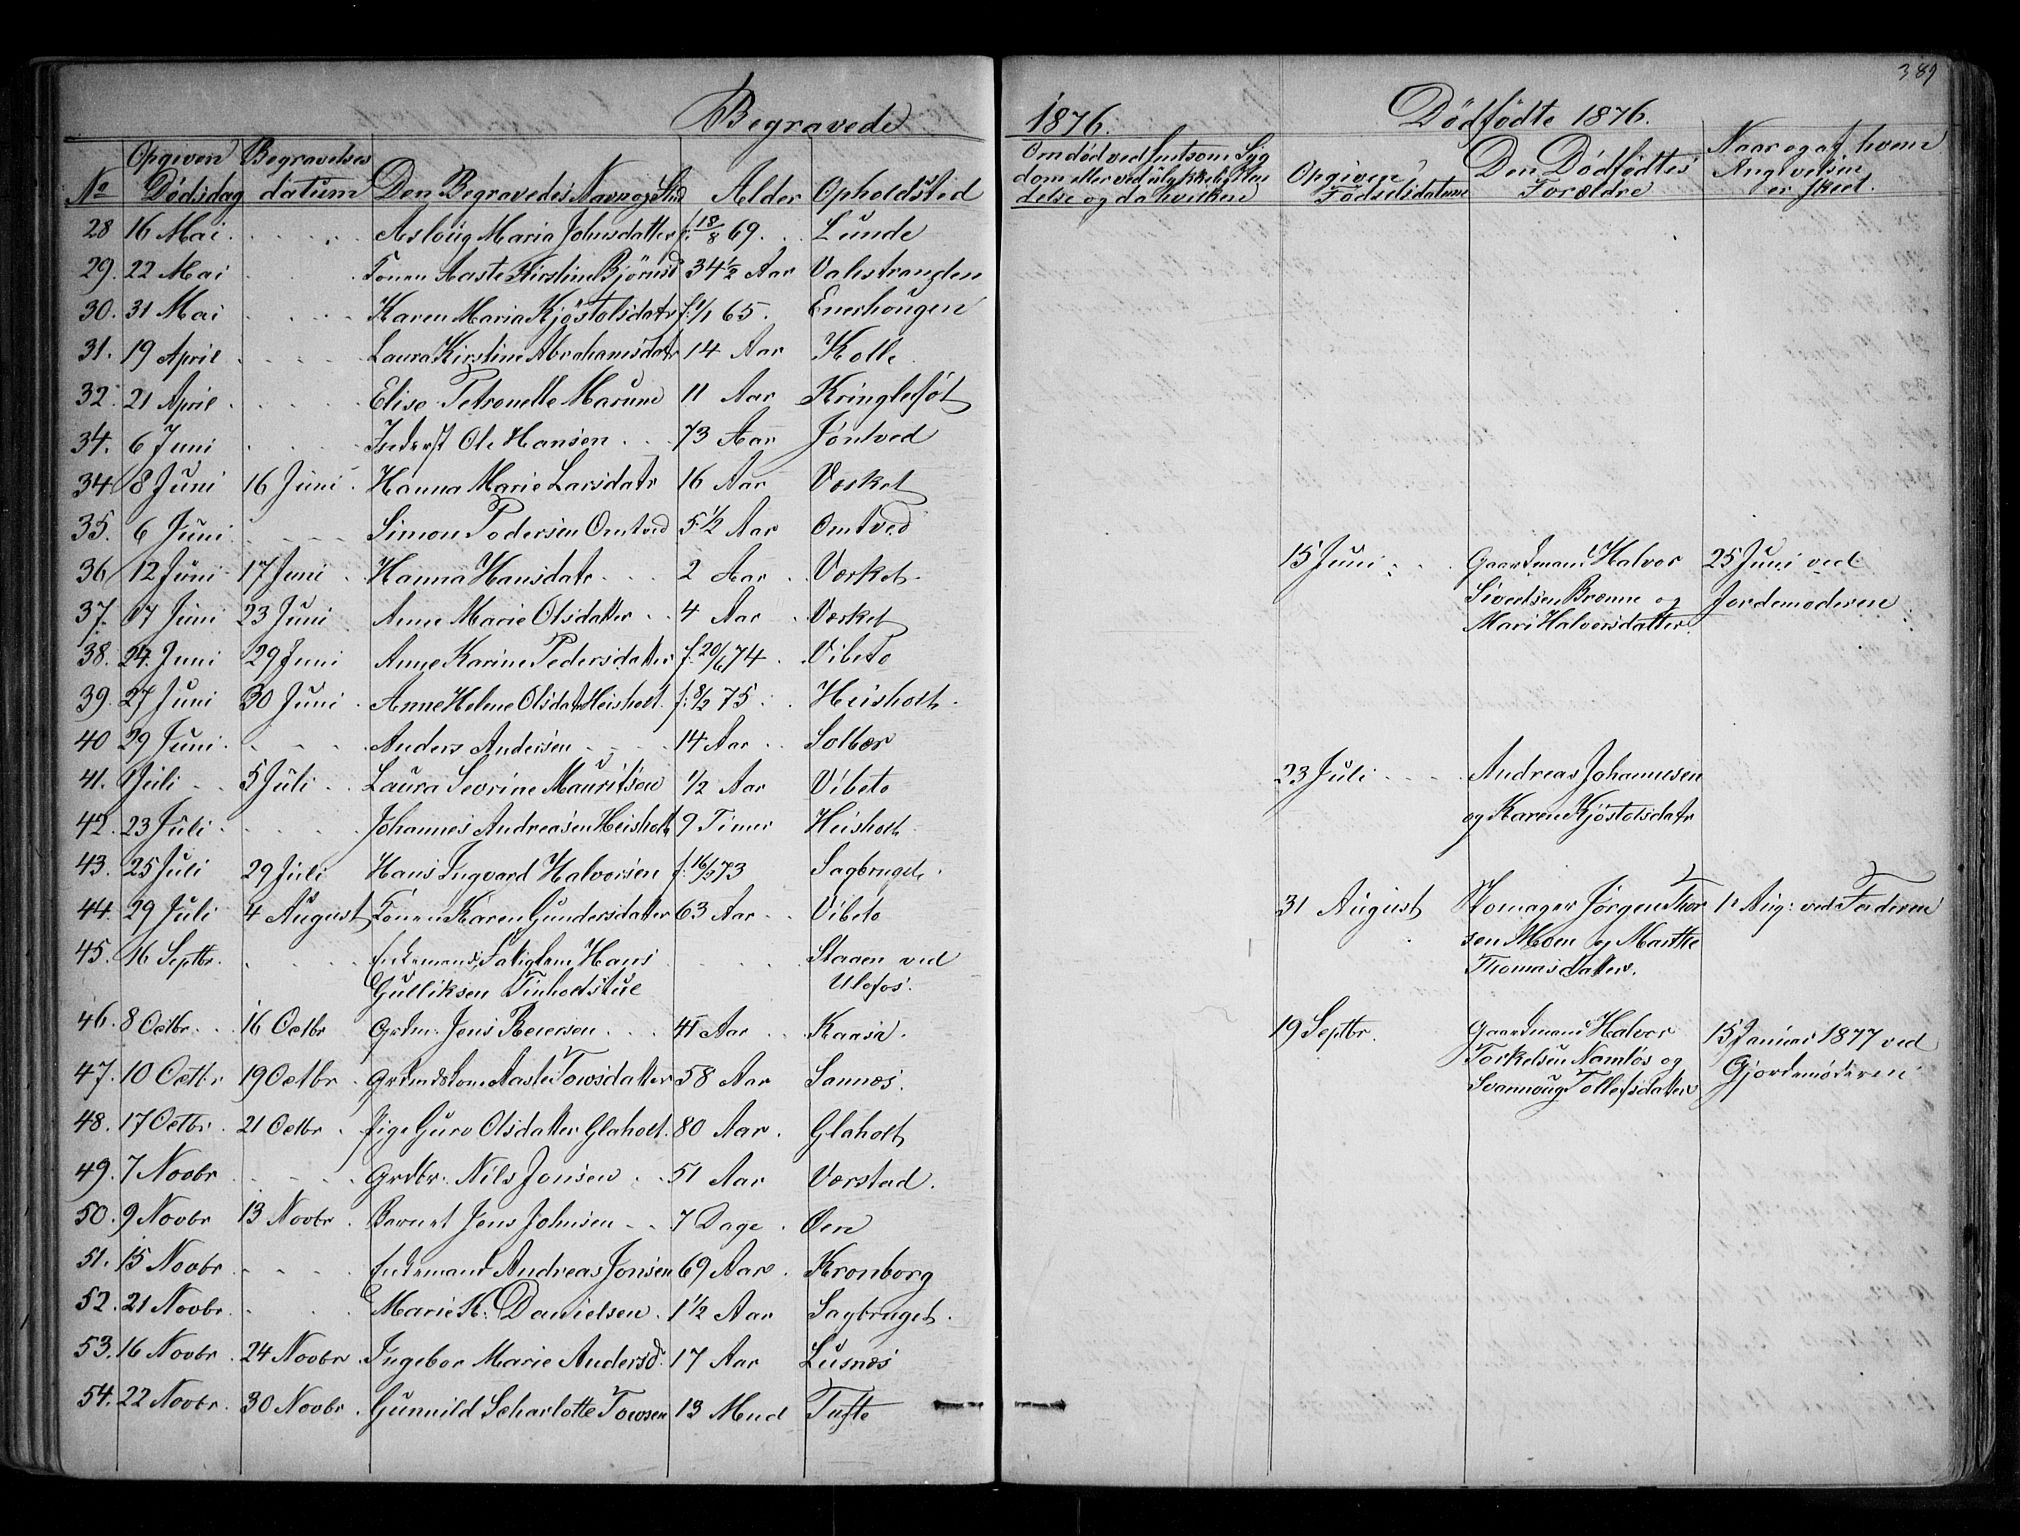 389
Begravede
1876.
Dödfödte 1876.
No Opgiven Dødsdag Begravelses datum Den Begravedes Navn og Stand Alder Opholdsted
Om död ved smitsom Syg
dom eller ved ulykkelig Hæn
delse og da hvilken
Opgiven Födselsdatum Den Dödfödtes Forældre
Naar og af hvem
Angivelsen
er skeet.
28 16 Mai Aslöug Maria Johnsdatter f. 18/8 69. Lunde
29. 22 Mai Aaste Kirstine Björnsd 34 1/2 Aar Valestranden
30. 31 Mai Karen Maria Kjöstolsdatr f. 1/1 65. Enerhougen
31. 19 April Laura Kirstine Abrahamsdatr 14 Aar Kolle
32. 21 April Elise Petronelle Marum 11 Aar Kringlefot
34. 6 Juni Inderst Ole Hansen 73 Aar Jöntved
34 8 Juni 16 Juni Hanna Marie Larsdatr 16 Aar Værket
35. 6 Juni Simon Pedersen Omtved 5 1/2 Aar Omtved
36 12 Juni 17 Juni Hanna Hansdatr 2 Aar Værket
37. 17 Juni 23 Juni Anne Marie Olsdatter 4 Aar Værket
38. 24 Juni 29 Juni Anne Karine Pedersdatter f. 20/6 74 Vibeto
39. 27 Juni 30 Juni Anne Helene Olsdatr Heisholt f. 8/2 75 Heisholt
40 29 Juni Anders Andersen 14 Aar Solbær
41. 1 Juli 5 Juli Laura Sevrine Mauritsen 1/2 Aar Vibeto
42. 23 Juli Johannes Andreasen Heisholt 9 Timer Heisholt
43. 25 Juli 29 Juli Hans Ingvard Halvorsen f. 16/5 73 Sagbruget
44. 29 Juli 4 August Konen Karen Gundersdatter 63 Aar Vibeto
45. 16 Septbr. Fatiglem Hans Staaen ved
Gulliksen Tinholtstue Ulefos.
46. 8 Octbr. 16 Octbr Grdm. Jens Reiersen 41 Aar Kaasa.
47. 10 Octbr 19 Octbr. Grdmdskone Aaste Towsdatter 58 Aar Sannæs.
48. 17 Octbr. 21 Octbr. Pige Guro Olsdatter Glaholt. 80 Aar. Glaholt
49. 7 Novbr Grdbr. Nils Jonsen 51 Aar Værstad.
50. 9 Novbr 13 Novbr. Barnet Jens Johnsen 7 Dage Öen
51. 15 Novbr Enkemand Andreas Jonsen 69 Aar. Kronborg
52. 21 Novbr Marie K. Danielsen 1 1/2 Aar Sagbruget.
53. 16 Novbr. 24 Novbr. Ingebor Marie Andersd. 17 Aar Lusnæs
54. 22 Novbr. 30 Novbr. Gunnild Scharlotte Towsen 13 Mnd Tufte
15 Juni Gaardmand Halvor 25 Juni ved
Sivertsen Brænne og Jordemoderen
Mari Halvorsdatter.
23 Juli Andreas Johannesen
og Karen Kjöstolsdatr
31 August Jörgen Thor 1 Aug: ved Faderen
sen Moen og Marthe
Thomasdatter.
19 Septbr. Gaardmand Halvor 15 Januar 1877 ved
Torkelsen Namlös og Gjordemoderen
Svannoug Tollefsdatter